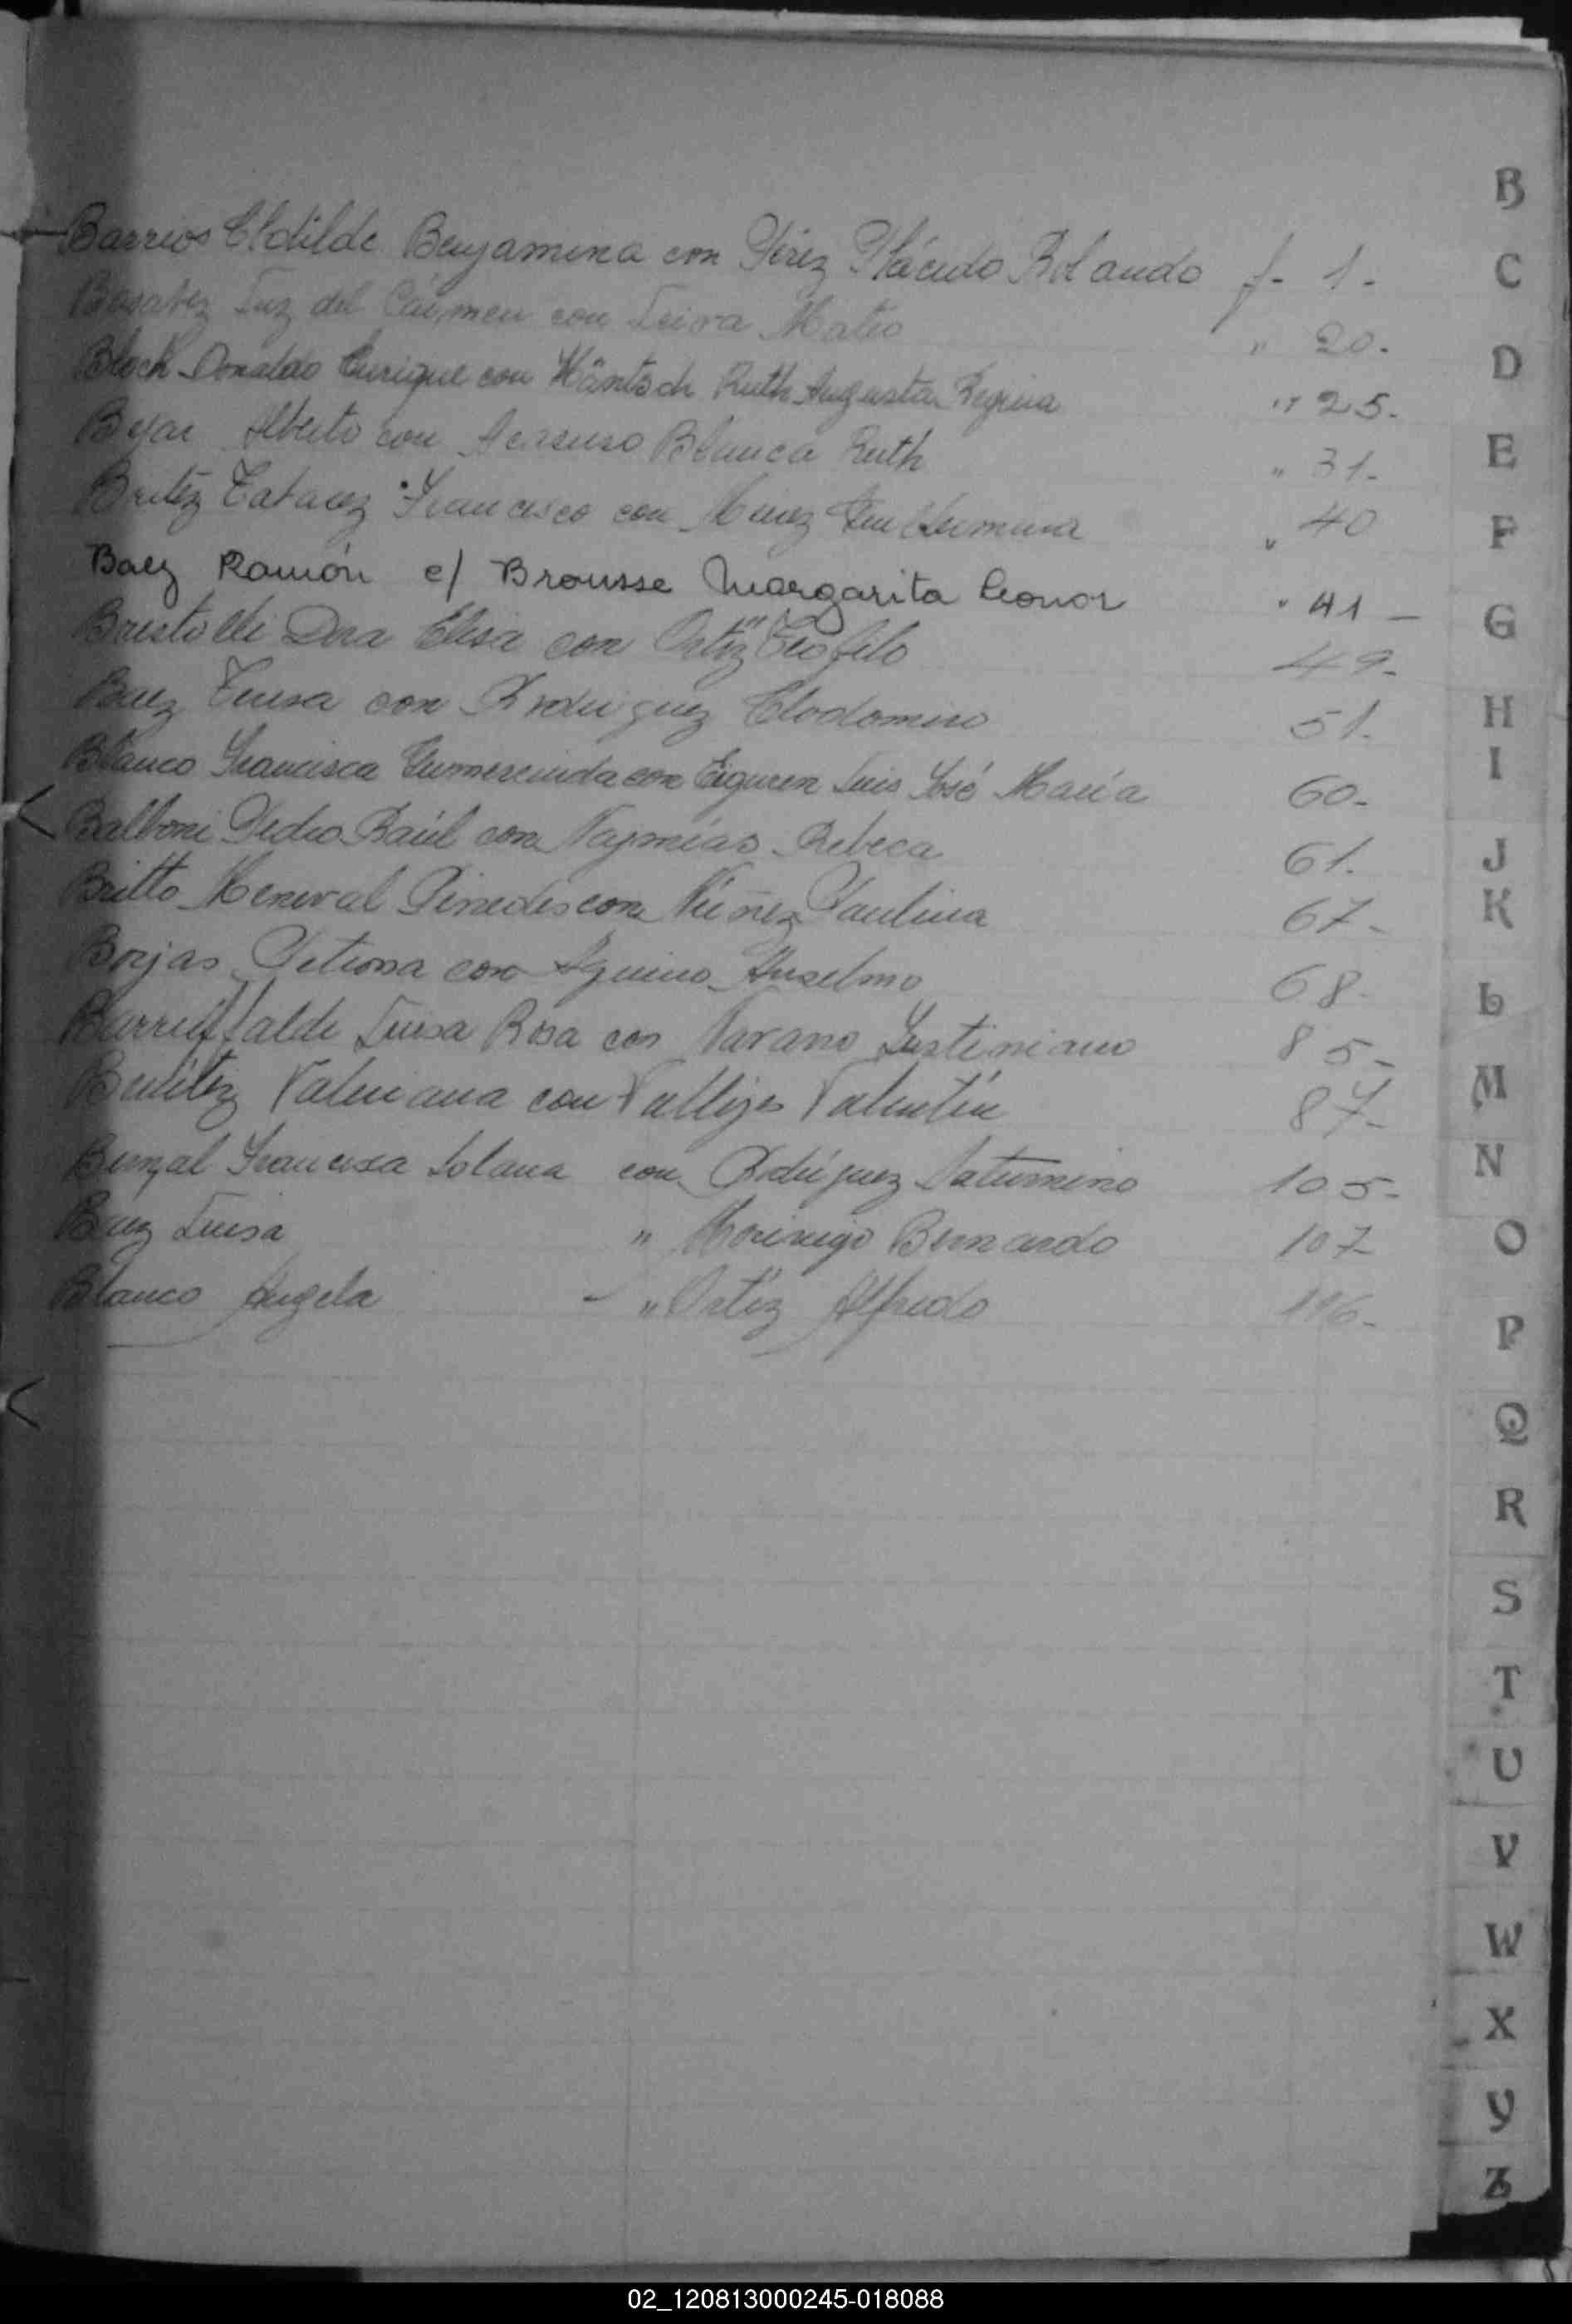 Barrios Clotilde Benjamina con Pérez Plácido Rolando f- 1-
Luz del Cármen con Leiva Mateo " 20-
Block Donaldo Enrique con Häntsch Ruth Augusta Regina " 25-
Alberto con Blanca Ruth " 31-
Britez Francisco con " 40
Baez Ramón c/ Brousse Margarita Leonor " 41 -
Dora Elisa con Ortiz Teófilo 49-
Baez Luisa con Rodriguez Clodomiro 51-
Blanco Francisca Gumercinda con Eiguren Luis José María 60-
Balboni Pedro Raúl con Najmías Rebeca 61-
Britto Meneval con Núñez Paulina 67-
Borjas Petrona con Aquino Anselmo 68-
Barruffaldi Luisa Rosa con Navano Justiniano 85-
Benítez Valeriana con Vallejos Valentín 87-
Francisca Solana con Rodríguez Saturnino 105-
Baez Luisa " Morinigo Bernardo 107-
Blanco Angela - " Ortíz Alfredo 116-
B
C
D
E
F
G
H
I
J
K
L
M
N
O
P
Q
R
S
T
U
V
W
X
Y
Z
02_120813000245-018088